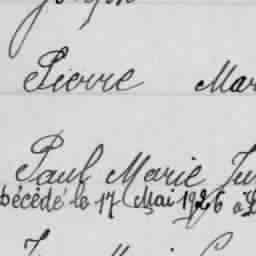 Pierre Mar
Paul Marie Ju
Décédé le 17 Mai 1926 à